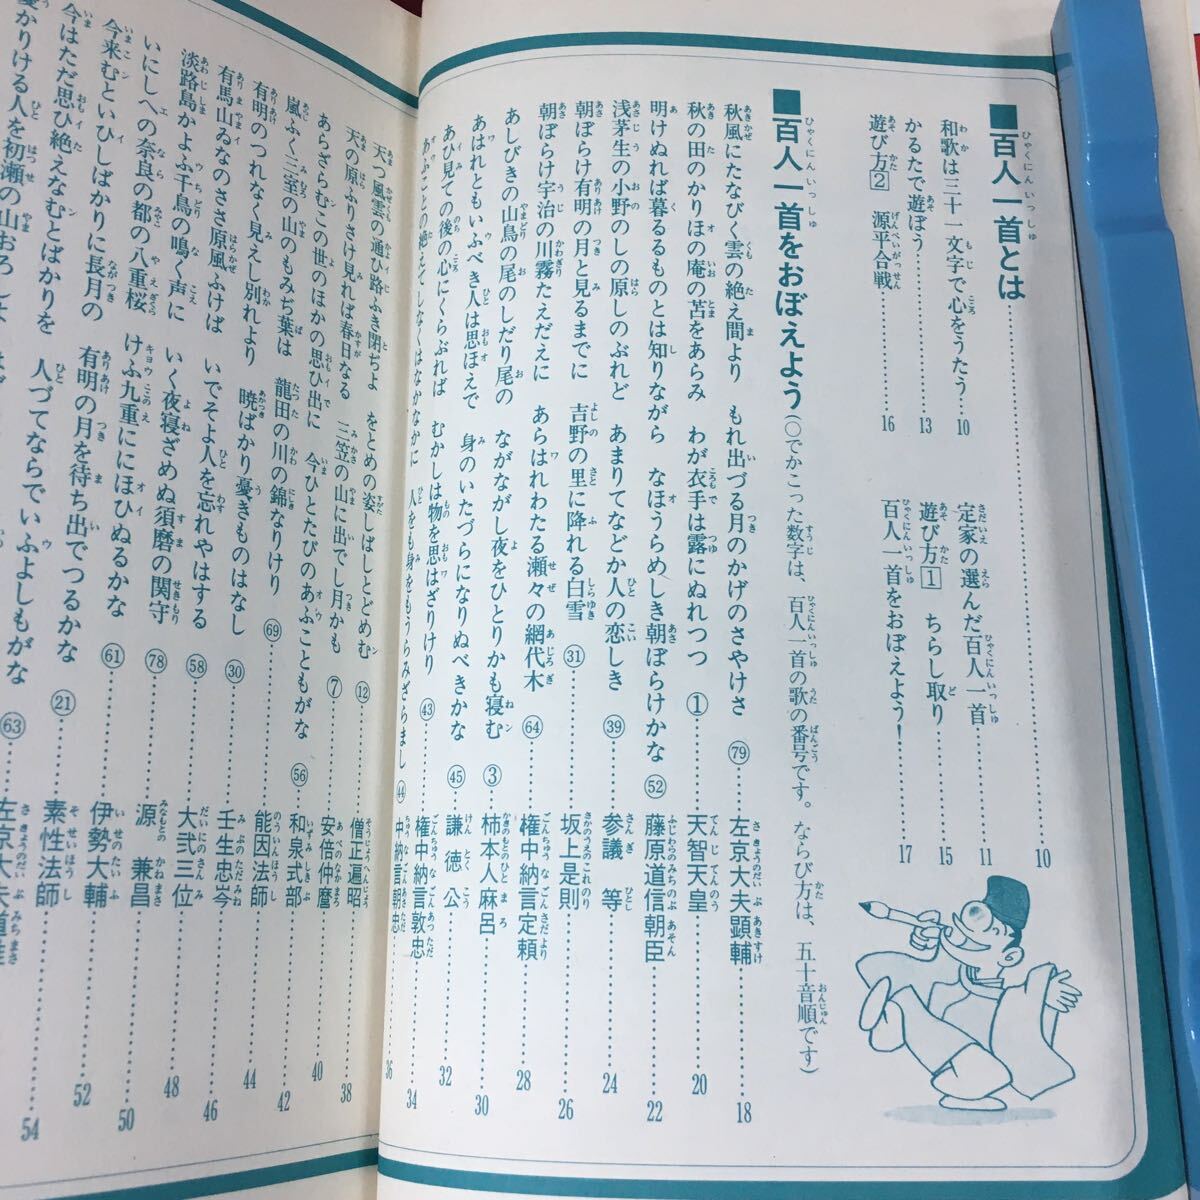 ■百人一首とは………10
和歌は三十一文字で心をうたう……10
定家の選んだ百人一首……11
かるたで遊ぼう……13
遊び方1 ちらし取り……15
遊び方2 源平合戦……16
百人一首をおぼえよう!……17
■百人一首をおぼえよう(○でかこった数字は、百人一首の歌の番号です。ならび方は、五十音順です)
秋風にたなびく雲の絶え間より もれ出づる月のかげのさやけさ ㊴79……左京大夫顕輔……18
秋の田のかりほの庵の苫をあらみ わが衣手は露にぬれつつ ①……天智天皇……20
明けぬれば暮るるものとは知りながら なほうらめしき朝ぼらけかな 52……藤原道信朝臣……22
浅茅生の小野のしの原しのぶれど あまりてなどか人の恋しき ㊴……参議 等……24
朝ぼらけ有明の月と見るまでに 吉野の里に降れる白雪 ㉛……坂上是則……26
朝ぼらけ宇治の川霧たえだえに あらはれわたる瀬々の網代木 64……権中納言定頼……28
あしびきの山鳥の尾のしだり尾の ながながし夜をひとりかも寝む ③……柿本人麻呂……30
あはれともいふべき人は思ほえで 身のいたづらになりぬべきかな ㊺……謙徳公……32
あひ見ての後の心にくらぶれば むかしは物を思はざりけり ㊸……権中納言敦忠……34
あふことの絶えてしなくはなかなかに 人をも身をもうらみざらまし ㊹……中納言朝忠……36
天つ風雲の通ひ路ふき閉ぢよ をとめの姿しばしとどめむ ⑫……僧正遍昭……38
天の原ふりさけ見れば春日なる 三笠の山に出でし月かも ⑦……安倍仲麿……40
あらざらむこの世のほかの思ひ出に 今ひとたびのあふこともがな 56……和泉式部……42
嵐ふく三室の山のもみぢ葉は 龍田の川の錦なりけり 69……能因法師……44
有明のつれなく見えし別れより 暁ばかり憂きものはなし ㉚……壬生忠岑……46
有馬山ゐなのささ原風ふけば いでそよ人を忘れやはする 58……大弐三位……48
淡路島かよふ千鳥の鳴く声に いく夜寝ざめぬ須磨の関守 78……源 兼昌……50
いにしへの奈良の都の八重桜 けふ九重ににほひぬるかな 61……伊勢大輔……52
今来むといひしばかりに長月の 有明の月を待ち出でつるかな ㉑……素性法師……54
今はただ思ひ絶えなむとばかりを 人づてならでいふよしもがな 63……左京大夫道雅
憂かりける人を初瀬の山おろしよ